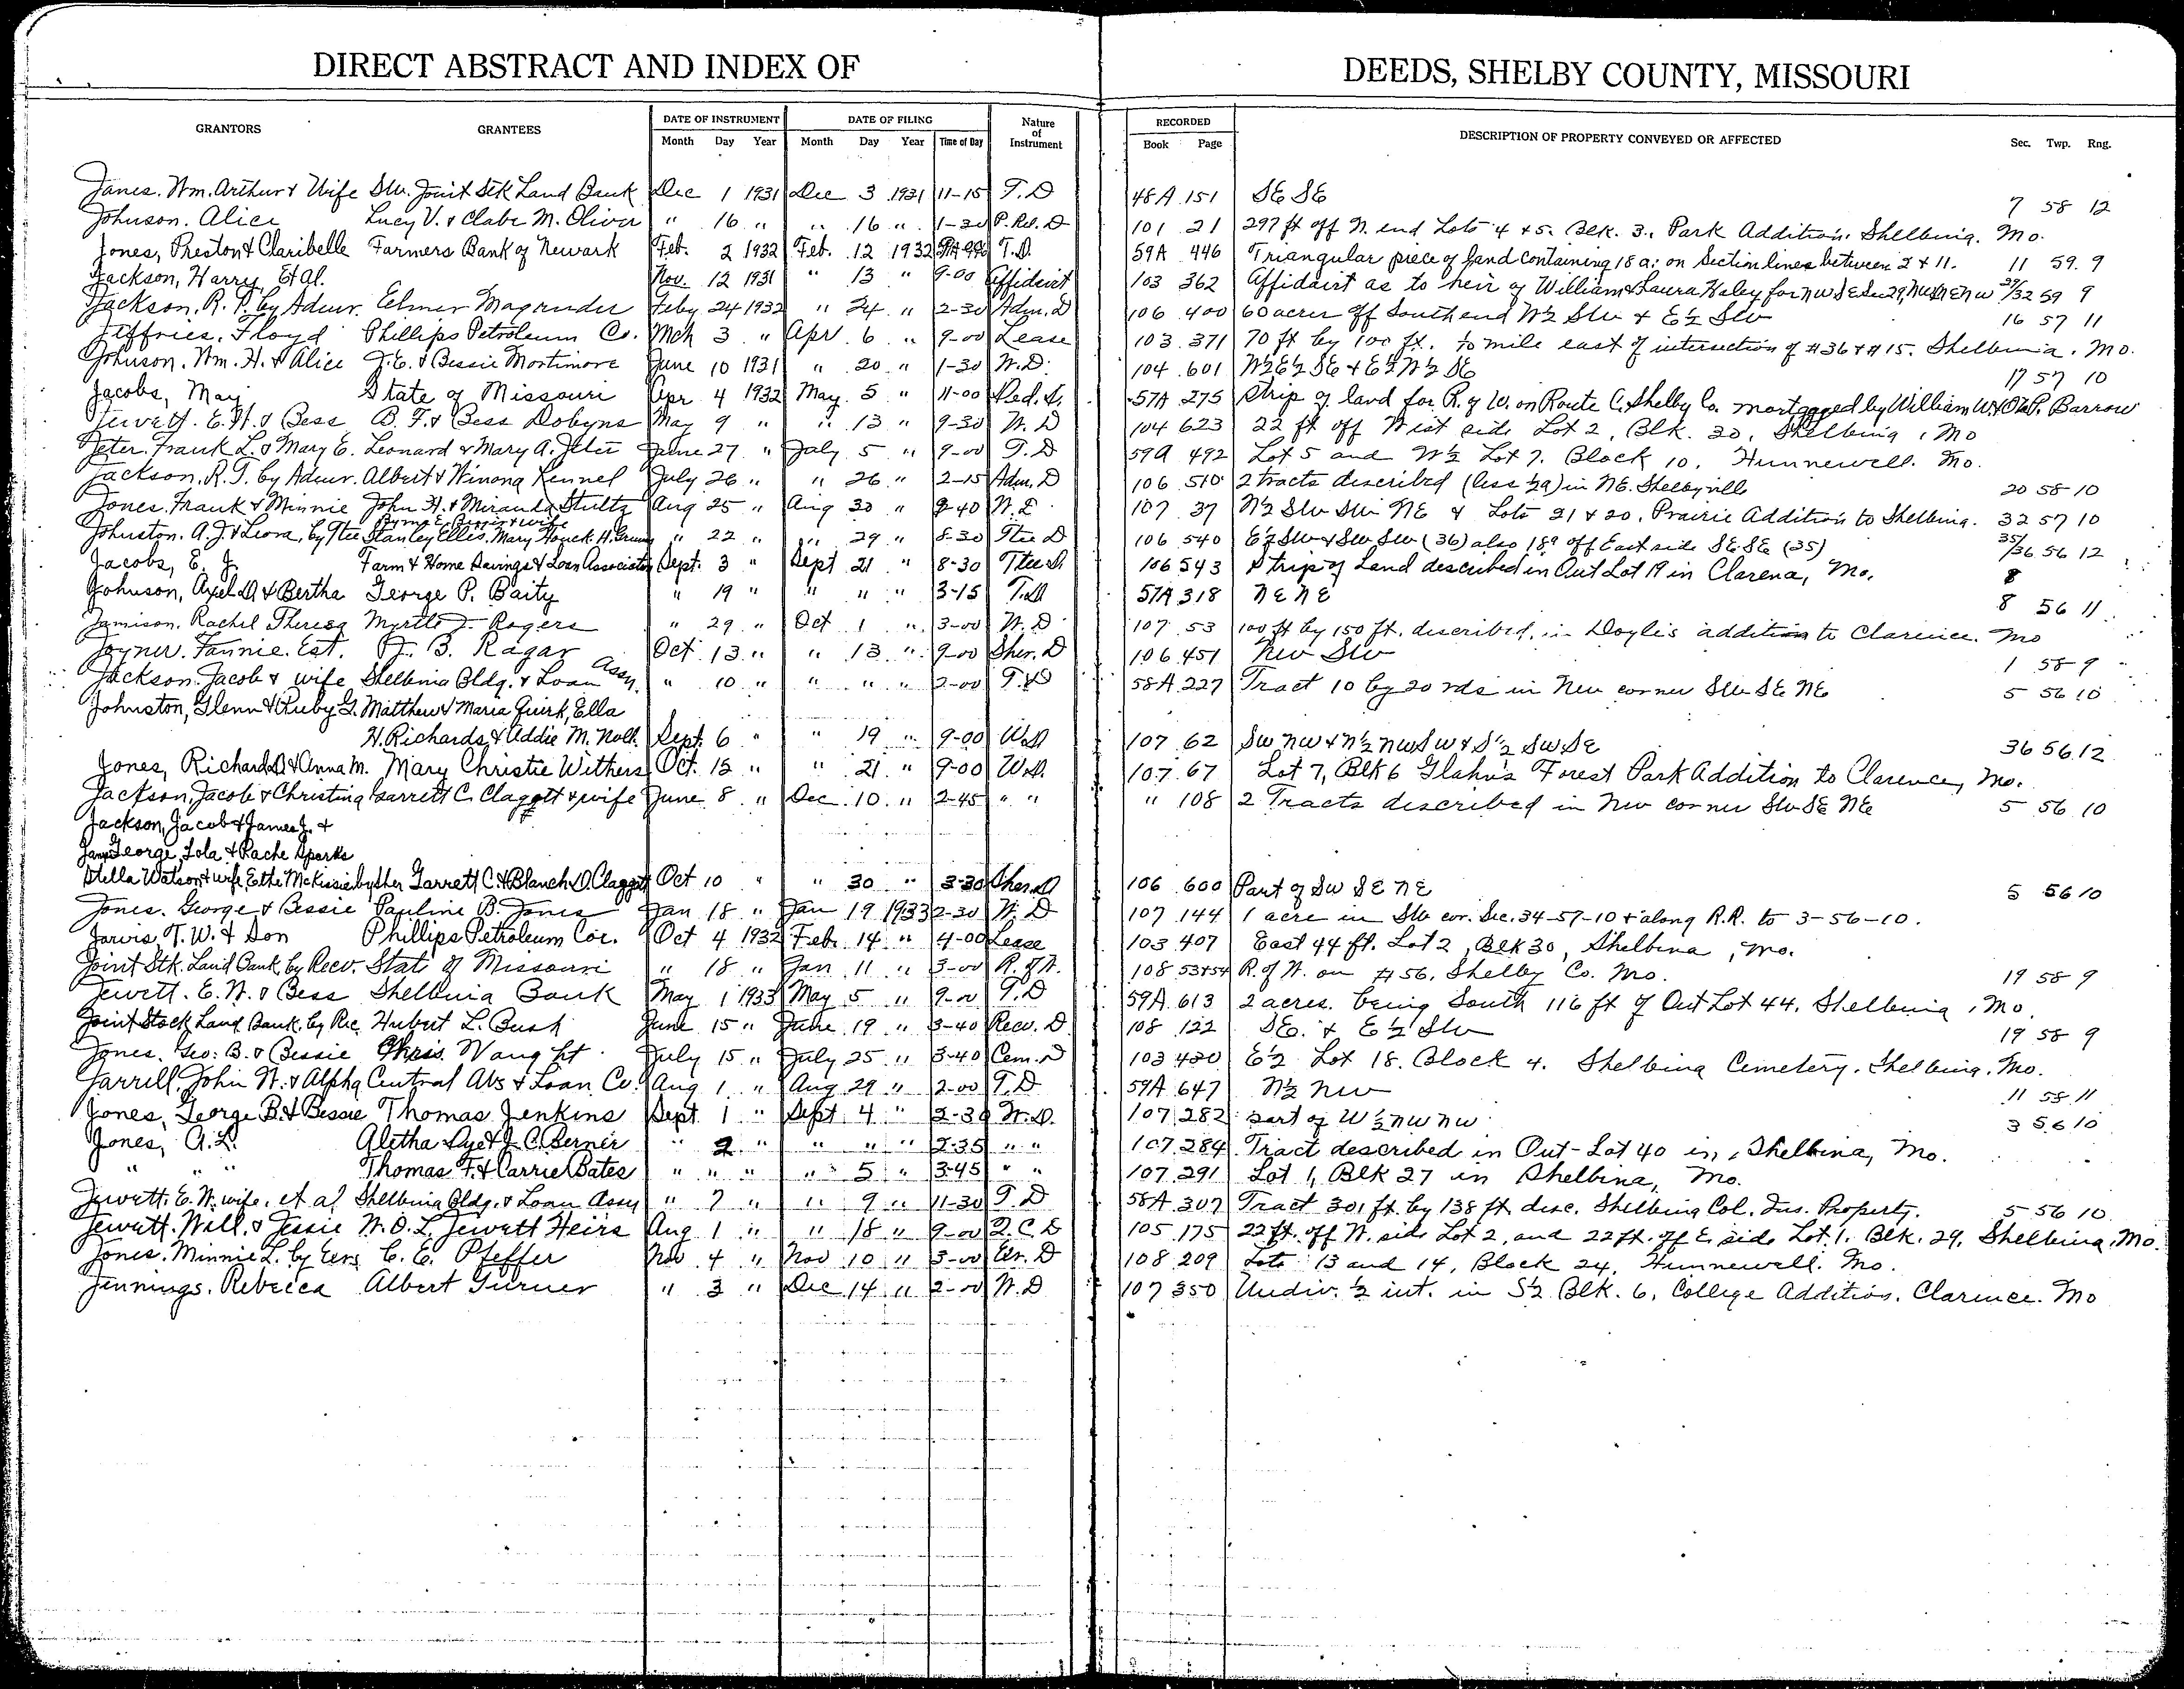 DIRECT ABSTRACT AND INDEX OF DEEDS, SHELBY COUNTY, MISSOURI
GRANTORS GRANTEES DATE OF INSTRUMENT Month Day Year DATE OF FILING Month Day Year Time of Day Nature of Instrument RECORDED Book Page DESCRIPTION OF PROPERTY CONVEYED OR AFFECTED Sec. Twp. Rng.
Janes. Wm. Arthur & Wife St. Joint Stk Land Bank Dec 1 1931 Dec 3 1931 11-15 T.D 48A 151 SE SE 7 58 12
Johnson. Alice Lucy V. & Clabe M. Oliver " 16 " " 16 " 1-30 P. Rel. D 101 21 297 ft off N. end Lots 4 & 5. Blk. 3., Park Addition. Shelbina. Mo.
Jones, Preston & Claribelle Farmers Bank of Newark Feb. 2 1932 Feb. 12 1932 T.D. 59A 446 Triangular piece of land containing 18 a. on Section lines between 2 & 11. 11 59 9
Jackson, Harry, Et Al. Nov. 12 1931 " 13 " 9-00 Affidavit 103 362 Affidavit as to heir of William & Laura Haley for NW SE Sec 29, NW NE NW 29/32 59 9
Jackson, R. T. by Admr. Elmer Magruder Feby 24 1932 " 24 " 2-30 Adm. D 106 400 60 acres off South end W½ SW & E½ SW 16 57 11
Jeffries. Floyd Phillips Petroleum Co. Mch 3 " Apr. 6 " 9-00 Lease 103 371 70 ft by 100 ft. to mile east of intersection of #36 & #15. Shelbina. Mo.
Johnson. Wm. H. & Alice J. E. & Bessie Mortimore June 10 1931 " 20 " 1-30 W.D. 104 601 W½ E½ SE & E½ W½ SE 17 57 10
Jacobs, May State of Missouri Apr 4 1932 May. 5 " 11-00 Red. D. 57A 275 Strip of land for R. of W. on Route C. Shelby Co. mortgaged by William W. & Barrow
Jewett. E. W. & Bess B. F. & Bess Dobyns May 9 " " 13 " 9-30 W. D 104 623 22 ft off West side Lot 2, Blk. 30, Shelbina, Mo
Jeter. Frank L. & Mary E. Leonard & Mary A. Jeter June 27 " July 5 " 9-00 T. D 59A 492 Lot 5 and W½ Lot 7. Block 10. Hunnewell. Mo.
Jackson. R. T. by Admr. Albert & Winona Kennel July 26 " " 26 " 2-15 Adm. D 106 510 2 tracts described (less ½a) in NE. Shelbyville 20 58 10
Jones. Frank & Minnie John H. & Miranda Stultz Aug 25 " Aug 30 " 9-40 W. D 107 37 N½ SW SW NE & Lots 21 & 20. Prairie Addition to Shelbina. 32 57 10
Johnston. A. J. & Leora, by Ttee Stanley Ellis, Mary Houck, H. " 22 " " 29 " 8-30 Ttee D 106 540 E½ SW & SW SW (36) also 18a off East side SE SE (35) 35/36 56 12
Jacobs, E. J. Farm & Home Savings & Loan Association Sept. 3 " Sept 21 " 8-30 Ttee D. 106 543 Strip of Land described in Out Lot 19 in Clarena, Mo. 8
Johnson, Axel O. & Bertha George P. Baity " 19 " " " " 3-15 T.D. 57A 318 NE NE 8 56 11
Jamison. Rachel Theresa Myrtle J. Rogers " 29 " Oct 1 " 3-00 W. D 107 53 100 ft by 150 ft. described in Doyle's addition to Clarence. Mo
Joyner. Fannie. Est. J. B. Ragar Oct 13 " " 13 " 9-00 Sher. D 106 451 NW SW 1 58 9
Jackson. Jacob & wife Shelbina Bldg. & Loan Assn. " 10 " " " " 2-00 T. D 58A 227 Tract 10 by 20 rds in NW corner SW SE NE 5 56 10
Johnston, Glenn & Ruby G. Matthew & Maria Quirk, Ella
H. Richards & Addie M. Noll. Sept. 6 " " 19 " 9-00 W.D. 107 62 SW NW & N½ NW SW & S½ SW SE 36 56 12
Jones, Richard D. & Anna M. Mary Christie Withers Oct. 15 " " 21 " 9-00 W.D. 107 67 Lot 7, Blk 6 Glahn's Forest Park Addition to Clarence, Mo.
Jackson, Jacob & Christina Garrett C. Claggett & wife June 8 " Dec 10 " 2-45 " " " 108 2 Tracts described in NW corner SW SE NE 5 56 10
Jackson, Jacob & James J. &
George, Lola & Rache Sparks
Stella Watson & wife, Ethe McKissie by Sher Garrett C. & Blanch D. Claggett Oct 10 " " 30 " 3-30 Sher. D 106 600 Part of SW SE NE 5 56 10
Jones. George & Bessie Pauline B. Jones Jan 18 " Jan 19 1933 2-30 W. D 107 144 1 acre in SW cor. Sec. 34-57-10 & along R.R. to 3-56-10.
Jarvis, T. W. & Son Phillips Petroleum Co. Oct 4 1932 Feb. 14 " 4-00 Lease 103 407 East 44 ft. Lot 2, Blk 30, Shelbina, Mo.
Joint Stk. Land Bank, by Recv. State of Missouri " 18 " Jan 11 " 3-00 R. of W. 108 53&54 R. of W. on #56. Shelby Co. Mo. 19 58 9
Jewett. E. W. & Bess Shelbina Bank May 1 1933 May 5 " 9-00 T. D 59A 613 2 acres. being South 116 ft of Out Lot 44. Shelbina, Mo.
Joint Stock Land Bank. by Rec. Hubert L. Bush June 15 " June 19 " 3-40 Recv. D 108 122 SE. & E½ SW 19 58 9
Jones. Geo: B. & Bessie Chris. Waught July 15 " July 25 " 3-40 Cem. D 103 430 E½ Lot 18. Block 4. Shelbina Cemetery. Shelbina, Mo.
Jarrell. John W. & Alpha Central Abs & Loan Co. Aug 1 " Aug 29 " 2-00 T. D 59A 647 N½ NW 11 58 11
Jones, George B. & Bessie Thomas Jenkins Sept 1 " Sept. 4 " 2-30 W. D. 107 282 part of W½ NW NW 3 56 10
Jones, A. L. Aletha Dye & J. C. Berner " 2 " " " " 2-35 " " 107 284 Tract described in Out-Lot 40 in, Shelbina, Mo.
" " " Thomas F. & Carrie Bates " " " " 5 " 3-45 " " 107 291 Lot 1, Blk 27 in Shelbina, Mo.
Jewett. E. W. wife. et al Shelbina Bldg. & Loan Assn " 7 " " 9 " 11-30 T. D 58A 307 Tract 301 ft. by 138 ft. desc. Shelbina Col. Ins. Property. 5 56 10
Jewett. Will. & Jessie W. O. L. Jewett Heirs Aug 1 " " 18 " 9-00 Q. C. D 105 175 22 ft. off W. side Lot 2, and 22 ft. off E. side Lot 1. Blk. 29. Shelbina, Mo.
Jones. Minnie L. by Exrs C. E. Pfeffer Nov 4 " Nov 10 " 3-00 Exr. D 108 209 Lots 13 and 14, Block 24, Hunnewell. Mo.
Jennings. Rebecca Albert Turner " 3 " Dec 14 " 2-00 W. D 107 350 Undiv. ½ int. in S½ Blk. 6, College Addition. Clarence. Mo